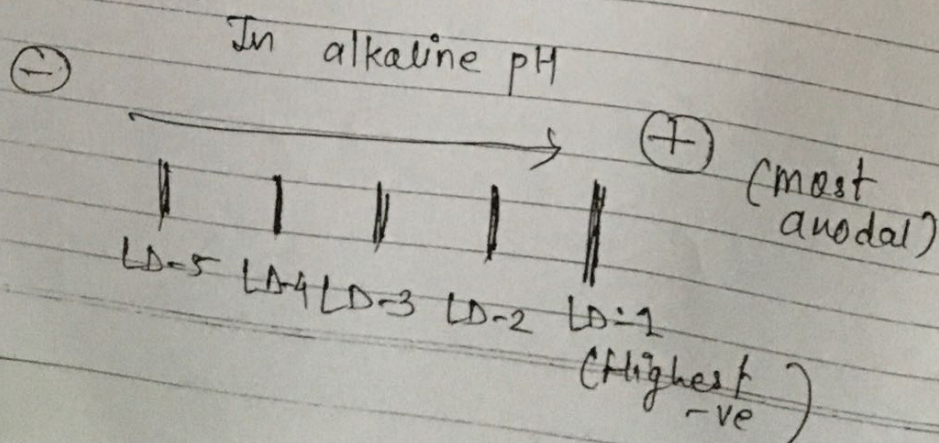 In alkaline pH
⊖ ⊕
(most
anodal)
LD-5 LD-4 LD-3 LD-2 LD-1
(Highest
-ve)